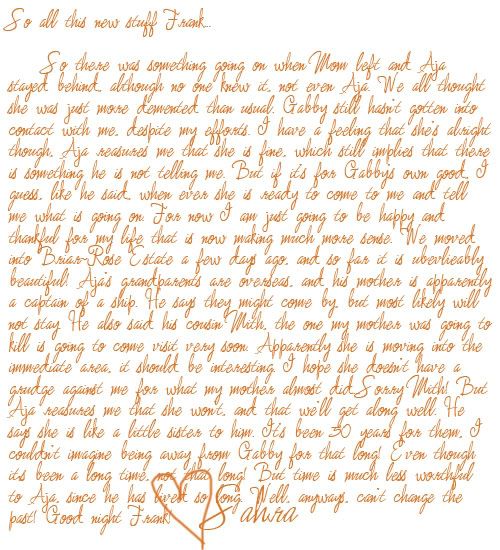 So all this new stuff Frank...
So there was something going on when Mom left and Aja
stayed behind, although no one knew it, not even Aja. We all thought
she was just more demented than usual. Gabby still hasn't gotten into
contact with me, despite my efforts. I have a feeling that she's alright
though, Aja reasures me that she is fine, which still implies that there
is something he is not telling me. But if it's for Gabby's own good, I
guess, like he said, when ever she is ready to come to me and tell
me what is going on. For now I am just going to be happy and
thankful for my life that is now making much more sense. We moved
into Briar-Rose Estate a few days ago, and so far it is ubevlieably
beautiful! Aja's grandparents are overseas, and his mother is apparently
a captain of a ship. He says they might come by, but most likely will
not stay. He also said his cousin Mith, the one my mother was going to
kill is going to come visit very soon. Apparently she is moving into the
immediate area, it should be interesting. I hope she doesn't have a
grudge against me for what my mother almost did. Sorry Mith! But
Aja reasures me that she wont, and that we'll get along well. He
says she is like a little sister to him. It's been 50 years for them, I
couldn't imagine being away from Gabby for that long! Even though
it's been a long time, not that long! But time is much less worthful
to Aja, since he has lived so long. Well, anyways, can't change the
past! Good night Frank! Saura